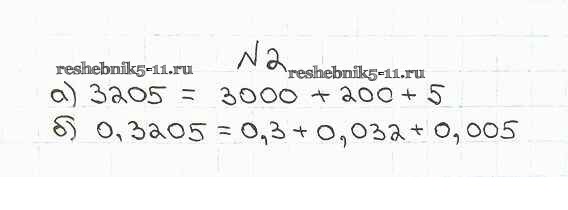 №2
reshebnik5-11.ru
reshebnik5-11.ru
а) 3205 = 3000 + 200 + 5
б) 0,3205 = 0,3 + 0,032 + 0,005